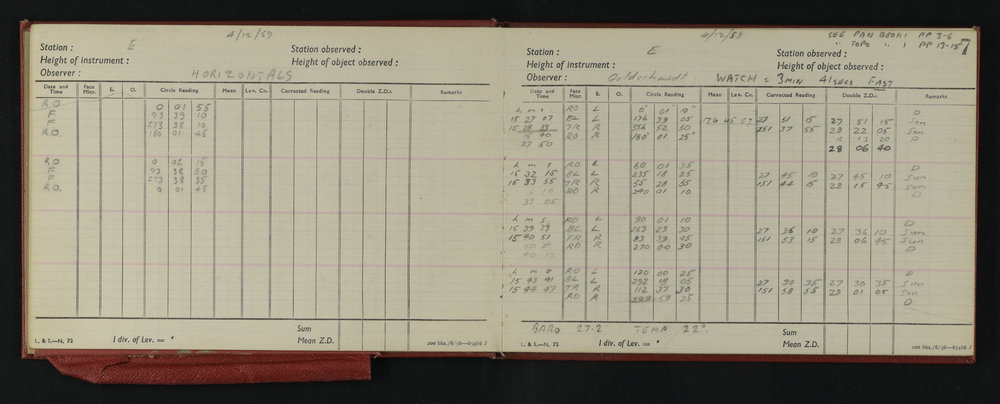 4/12/59
Station : E
Station observed :
Height of instrument :
Height of object observed :
Observer : HORIZONTALS
Date and Time Face Micr. E. O. Circle Reading Mean Lev. Co. Corrected Reading Double Z.D. Remarks
R.O. 0 01 55
F 93 39 10
F 273 38 10
R.O. 180 01 45
R.O. 0 02 15
F 93 38 50
F 273 38 35
R.O. 0 01 45
Sum
L. & S.—N. 72 1 div. of Lev. = " Mean Z.D.
200 bks./6/56—65466 J
4/12/59
SEE PAN BOOK 1 PP 3-6
" TOPO " 1 PP 13-15
7
Station : E
Station observed :
Height of instrument :
Height of object observed :
Observer : Goldschmidt WATCH = 3 MIN 41 SECS FAST
Date and Time Face Micr. E. O. Circle Reading Mean Lev. Co. Corrected Reading Double Z.D. Remarks
h m s RO L 0° 01' 10" D
15 27 07 BL L 176 39 05 176 45 57 27 51 15 27 51 15 Sun
15 28 33 TR R 356 52 50 151 37 55 28 22 05 Sun
15 40 RO R 180 01 25 D
27 50 28 06 40
h m s RO L 60 01 35 D
15 32 15 BL L 235 18 25 27 45 10 27 45 10 Sun
15 33 55 TR R 55 28 55 151 44 15 28 15 45 Sun
RO R 240 01 10 D
33 05
h m s RO L 90 01 10 D
15 39 33 BL L 263 23 30 27 36 10 27 36 10 Sun
15 40 51 TR R 83 39 45 151 53 15 28 06 45 Sun
RO R 270 00 30 D
h m s RO L 120 00 25 D
15 43 41 BL L 292 18 05 27 30 35 27 30 35 Sun
15 44 47 TR R 112 37 30 151 58 55 28 01 05 Sun
RO R 299 59 35 D
BARO 27.2" TEMP 22° Sum
L. & S.—N. 72 1 div. of Lev. = " Mean Z.D.
200 bks./6/56—65466 J